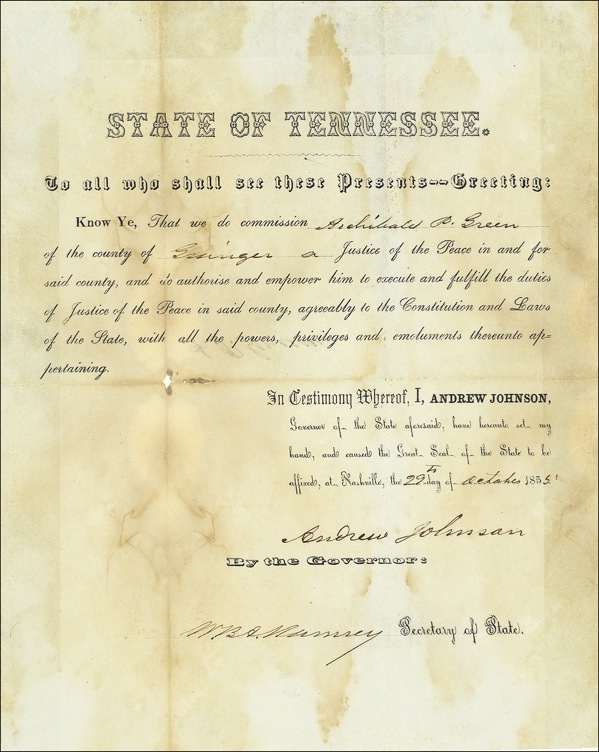 STATE OF TENNESSEE.
To all who shall see these Presents--Greeting:
Know Ye, That we do commission Archibald P. Green
of the county of Grainger a Justice of the Peace in and for
said county, and do authorise and empower him to execute and fulfill the duties
of Justice of the Peace in said county, agreeably to the Constitution and Laws
of the State, with all the powers, privileges and emoluments thereunto ap=
pertaining.
In Testimony Whereof, I, ANDREW JOHNSON,
Governor of the State aforesaid, have hereunto set my
hand, and caused the Great Seal of the State to be
affixed, at Nashville, the 29th day of October 1855
Andrew Johnson
By the Governor:
W B A Ramsey Secretary of State.